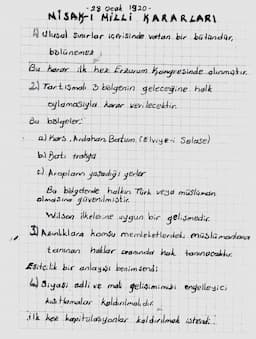 - 28 Ocak 1920 -
MİSAK-I MİLLİ KARARLARI
1) Ulusal sınırlar içerisinde vatan bir bütündür,
bölünemez.
Bu karar ilk kez Erzurum Kongresinde alınmıştır.
2) Tartışmalı 3 bölgenin geleceğine halk
oylamasıyla karar verilecektir.
Bu bölgeler:
a) Kars, Ardahan Batum, (Elviye-i Selase)
b) Batı trakya
c) Arapların yaşadığı yerler
Bu bölgelerde halkın Türk veya müslüman
olmasına güvenilmiştir.
Wilson ilkelerine uygun bir gelişmedir.
3) Azınlıklara komşu memleketlerdeki müslümanlara
tanınan haklar oranında hak tanınacaktır.
Eşitçilik bir anlayış benimsendi
4) Siyasi adli ve mali gelişimimizi engelleyici
kısıtlamalar kaldırılmalıdır.
İlk kez kapitülasyonlar kaldırılmak istendi.